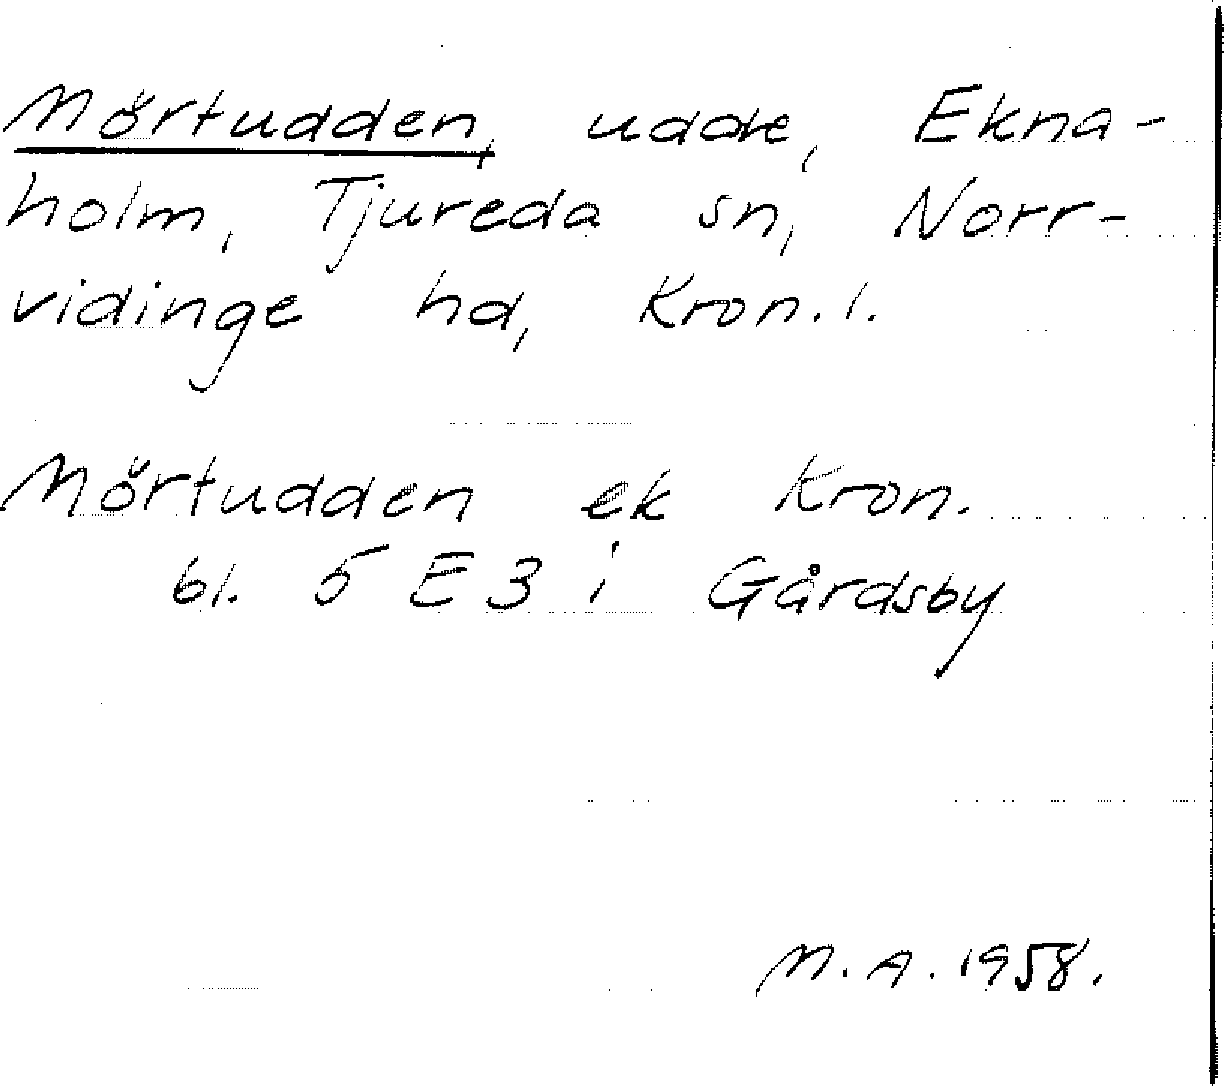 Mörtudden, udde, Ekna-
holm, Tjureda sn, Norr-
vidinge hd, Kron. l.
Mörtudden ek Kron.
bl. 5 E 3 i Gårdsby
M. A. 1958.